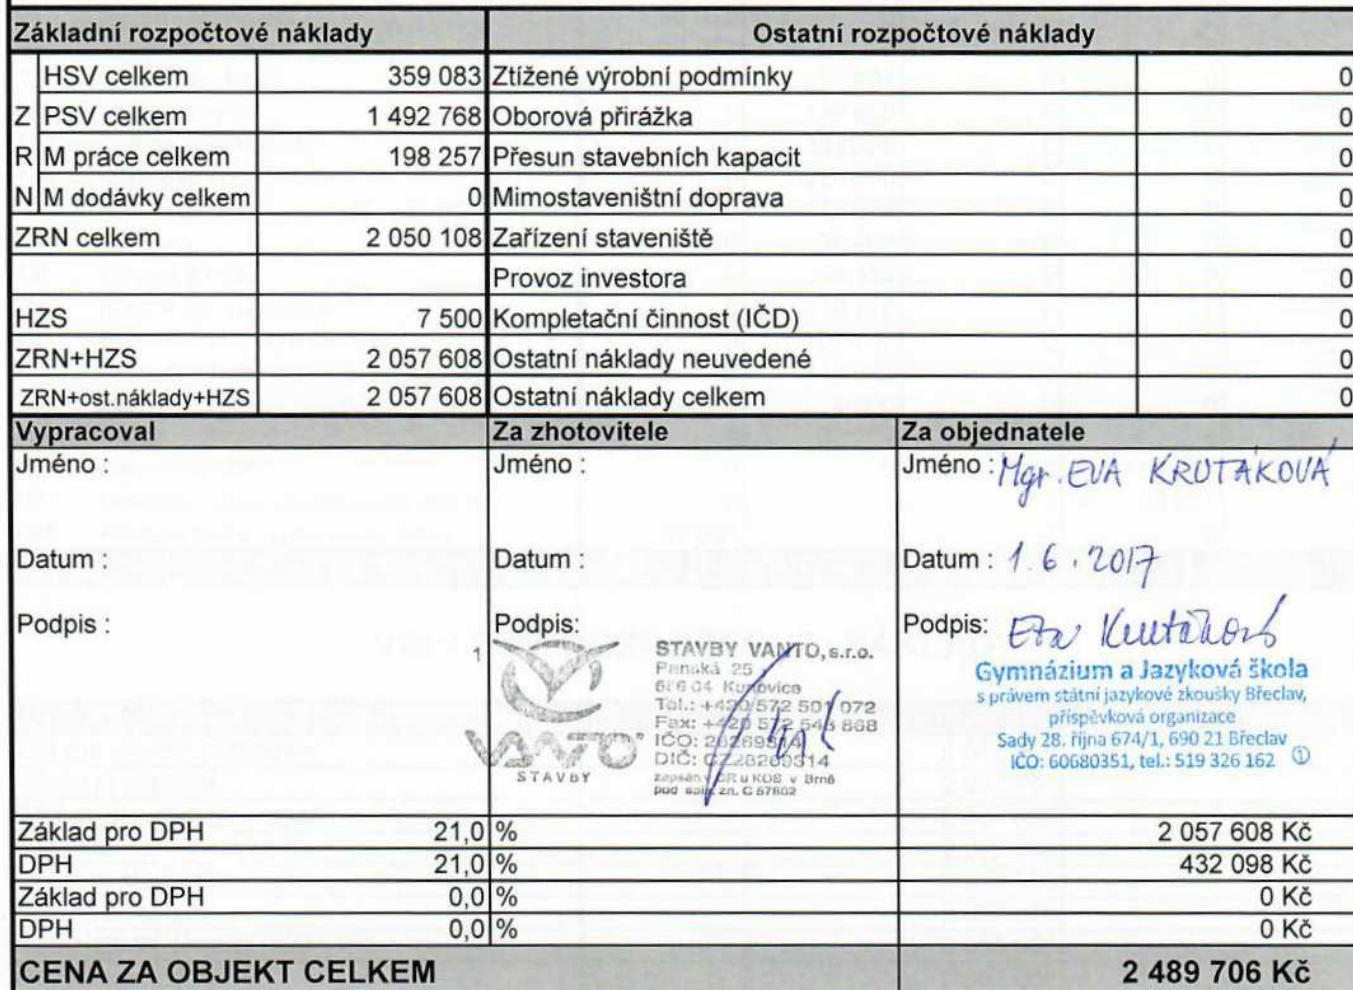 Základní rozpočtové náklady Ostatní rozpočtové náklady
HSV celkem 359 083 Ztížené výrobní podmínky 0
Z PSV celkem 1 492 768 Oborová přirážka 0
R M práce celkem 198 257 Přesun stavebních kapacit 0
N M dodávky celkem 0 Mimostaveništní doprava 0
ZRN celkem 2 050 108 Zařízení staveniště 0
Provoz investora 0
HZS 7 500 Kompletační činnost (IČD) 0
ZRN+HZS 2 057 608 Ostatní náklady neuvedené 0
ZRN+ost.náklady+HZS 2 057 608 Ostatní náklady celkem 0
Vypracoval Za zhotovitele Za objednatele
Jméno : Jméno : Jméno : Mgr. EVA KRUTÁKOVÁ
Datum : Datum : Datum : 1.6.2017
Podpis : Podpis: Podpis: Eva Krutáková
1
VANTO
STAVBY
STAVBY VANTO, s.r.o.
Panská 25
686 04 Kunovice
Tel.: +420 572 501 072
Fax: +420 572 548 868
IČO: 26269314
DIČ: CZ26269314
zapsán v OR u KOS v Brně
pod spis. zn. C 57802
Gymnázium a Jazyková škola
s právem státní jazykové zkoušky Břeclav,
příspěvková organizace
Sady 28. října 674/1, 690 21 Břeclav
IČO: 60680351, tel.: 519 326 162 1
Základ pro DPH 21,0 % 2 057 608 Kč
DPH 21,0 % 432 098 Kč
Základ pro DPH 0,0 % 0 Kč
DPH 0,0 % 0 Kč
CENA ZA OBJEKT CELKEM 2 489 706 Kč